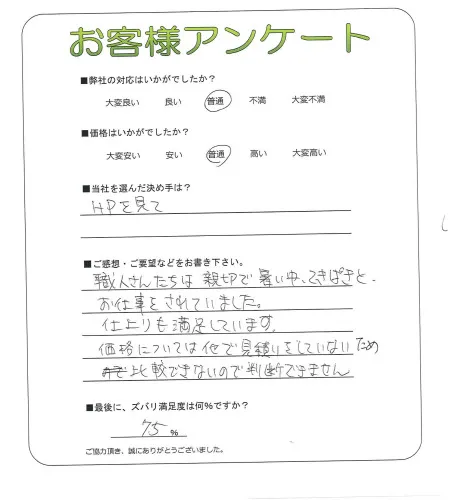 お客様アンケート
■弊社の対応はいかがでしたか？
大変良い 良い 普通 不満 大変不満
■価格はいかがでしたか？
大変安い 安い 普通 高い 大変高い
■当社を選んだ決め手は？
HPを見て
■ご感想・ご要望などをお書き下さい。
職人さんたちは親切で暑い中、てきぱきと、
お仕事をされていました。
仕上りも満足しています。
価格については他で見積りをしていないため
比較できないので判断できません
■最後に、ズバリ満足度は何％ですか？
75 %
ご協力頂き、誠にありがとうございました。